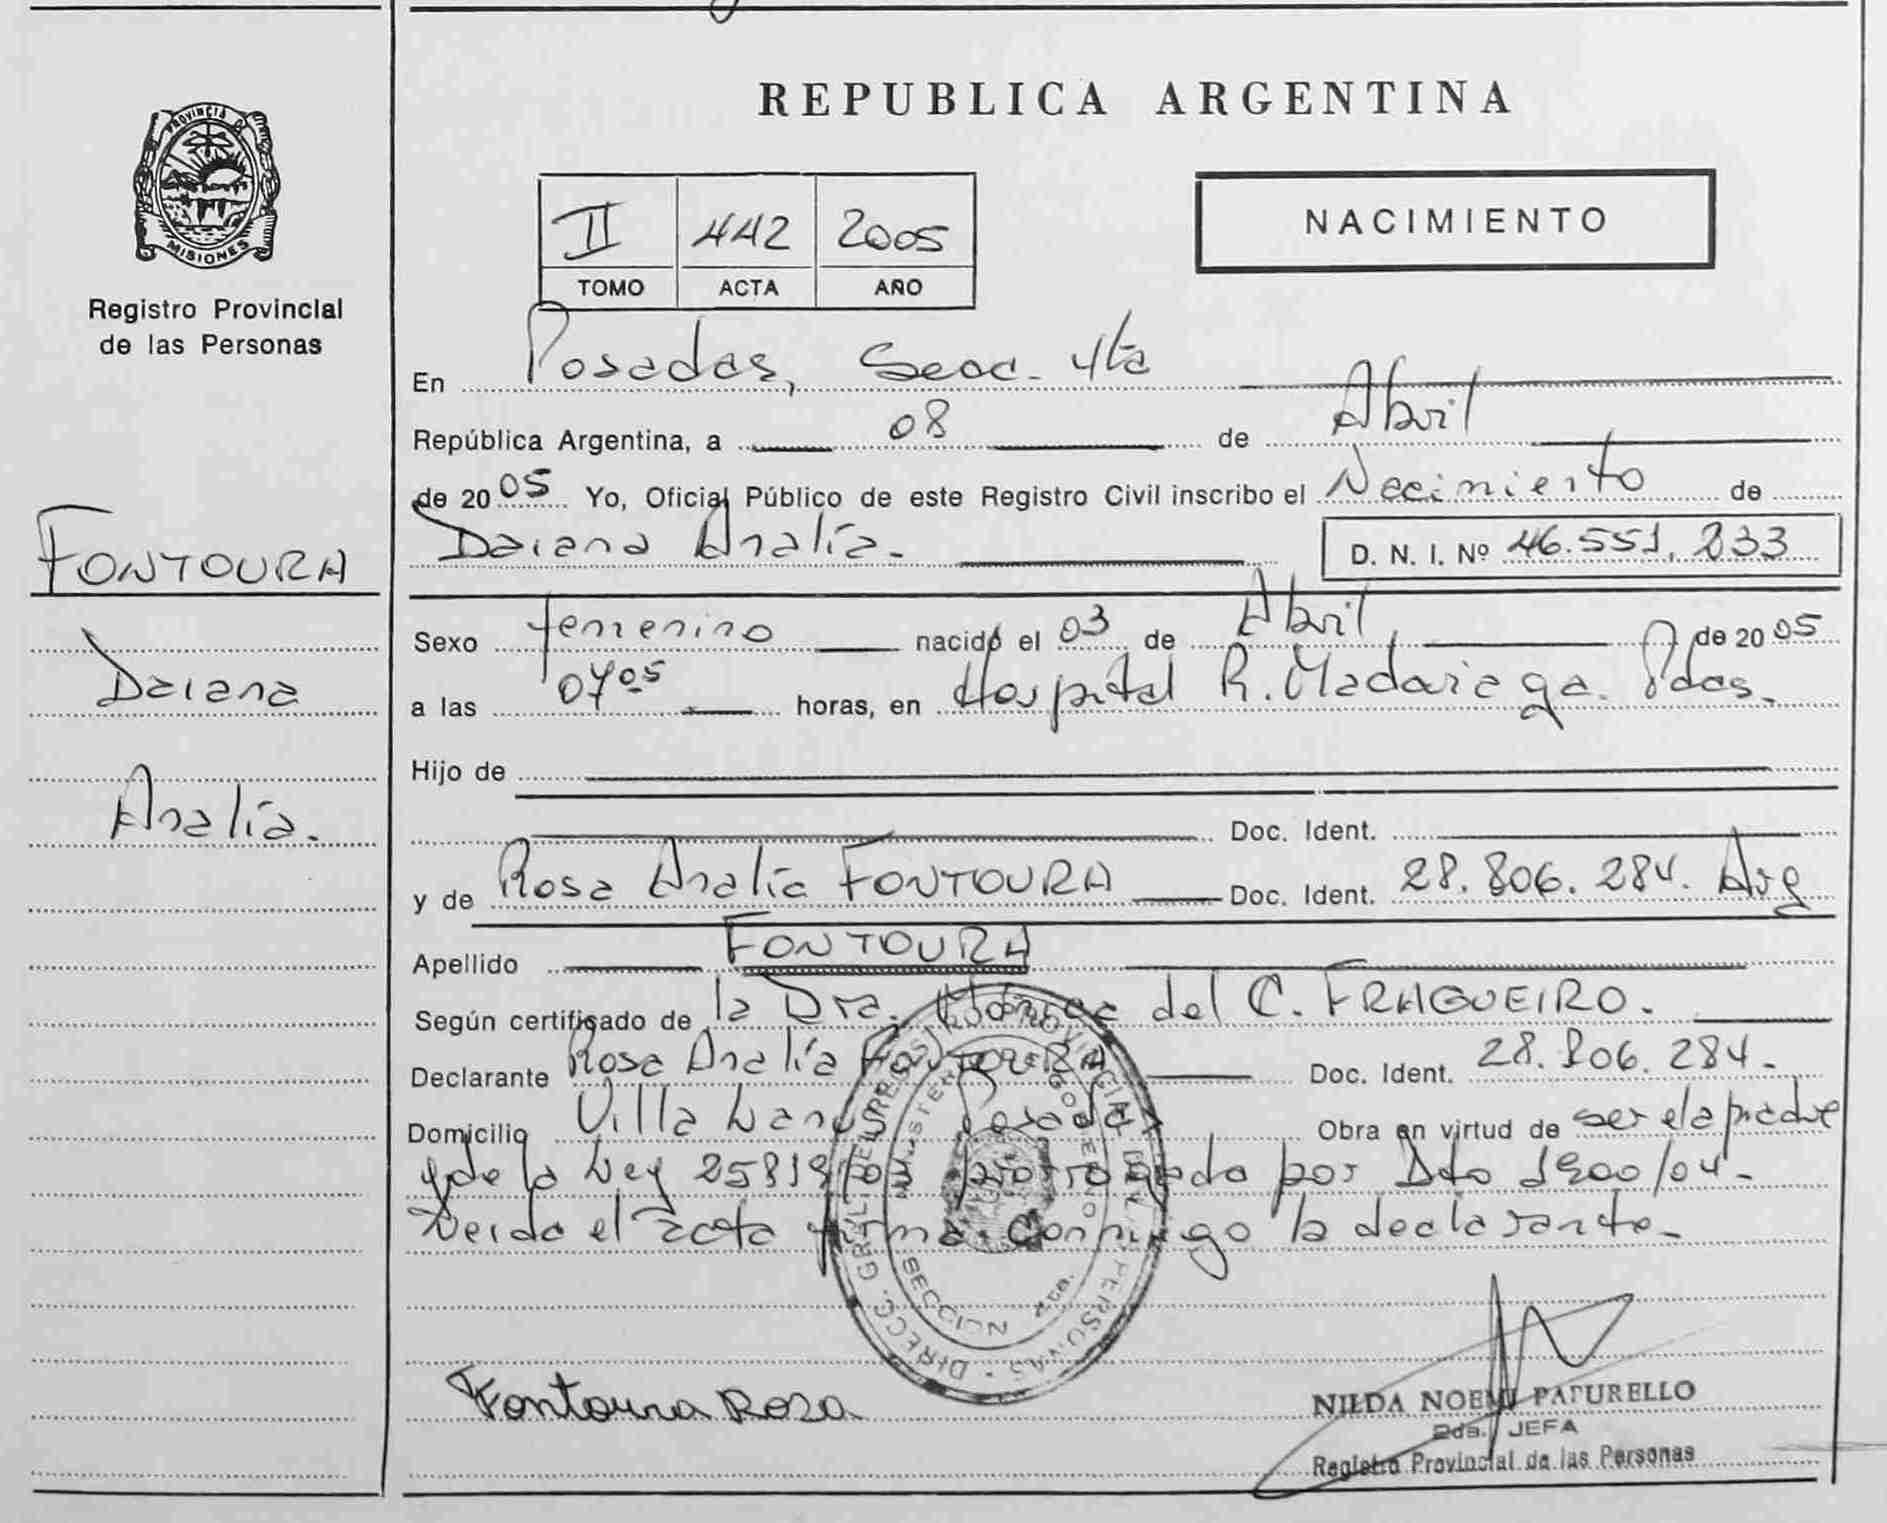 PROVINCIA D
MISIONES
Registro Provincial
de las Personas
FONTOURA
Daiana
Analía.
REPUBLICA ARGENTINA
II 442 2005
TOMO ACTA AÑO
NACIMIENTO
En Posadas, Secc. 4ta
República Argentina, a 08 de Abril
de 2005 Yo, Oficial Público de este Registro Civil inscribo el Nacimiento de
Daiana Analía. D. N. I. Nº 46.551.233
Sexo femenino nacido el 03 de Abril de 2005
a las 07 05 horas, en Hospital R. Madariaga. Pdas.
Hijo de
Doc. Ident.
y de Rosa Analía FONTOURA Doc. Ident. 28.806.284. Arg
Apellido FONTOURA
Según certificado de la Dra. Mónica del C. FRAGUEIRO.
Declarante Rosa Analía FONTOURA Doc. Ident. 28.806.284.
Domicilio Villa Posadas Obra en virtud de ser ela madre
y de la Ley 25819 prorrogada por Dto 1900/04.
Leida el acta firma conmigo la declarante.
DIRECC. GRAL. DEL REGISTRO PROVINCIAL DE L. PERSONAS
MINISTERIO GOBIERNO
SECCION 4ta.
Fontoura Rosa
NILDA NOEMI PATURELLO
2da. JEFA
Registro Provincial de las Personas